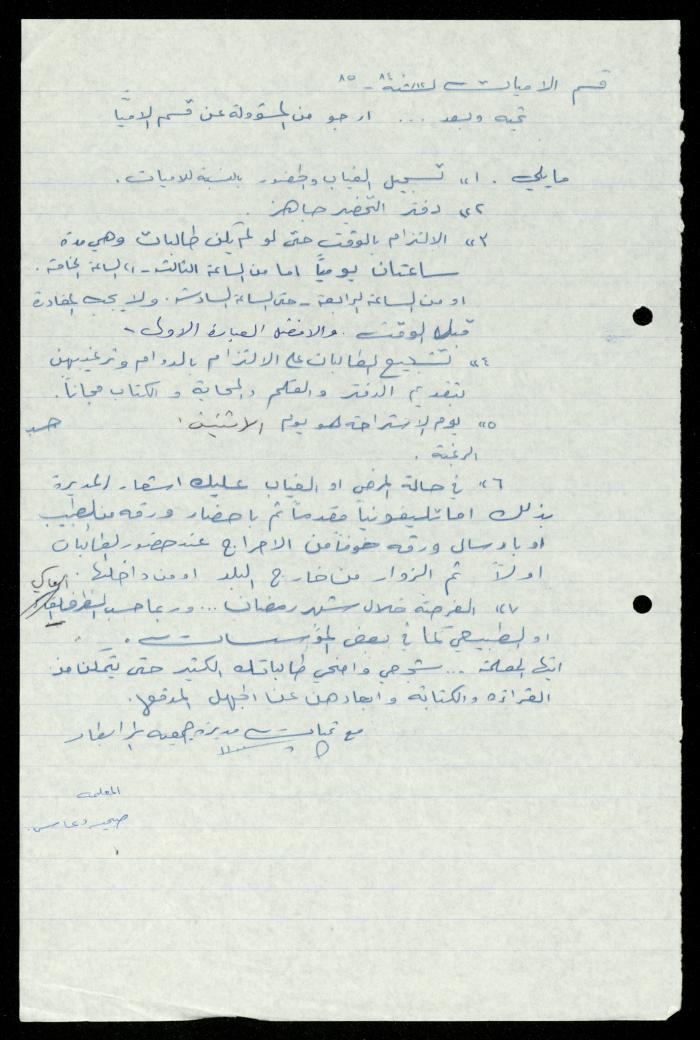 قسم الاميات لسنة ٨٤ - ٨٥
تحية وبعد ... ارجو من المسؤولة عن قسم الاميات
مايلي . ١" تسجيل الغياب والحضور بالنسبة للاميات .
٢" دفتر التحضير جاهز .
٣" الالتزام بالوقت حتى لو لم يكن طالبات وهي مدة
ساعتان يومياً اما من الساعة الثالثة - الساعة الخامسة .
او من الساعة الرابعة - حتى الساعة السادسة . ولا يجب المغادرة
قبل الوقت . والافضل العبارة الاولى -
٤" تشجيع الطالبات على الالتزام بالدوام وترغيبهن
بتقديم الدفتر والقلم والمحاية والكتاب مجاناً .
٥" يوم الاستراحة هو يوم الاثنين . حسب
الرغبة .
٦" في حالة المرض او الغياب عليك اشعار المديرة
بذلك اما تليفونياً مقدماً ثم باحضار ورقه من الطبيب
او بارسال ورقه خوفاً من الاحراج عند حضور الطالبات
اولاً ثم الزوار من خارج البلد او من داخلها .
٧" الفرصة خلال شهر رمضان ... وربما حسب الظرف
او الطبيعي كما في بعض المؤسسات .
ايتها المعلمة ... شجعي وامنحي طالباتك الكثير حتى يتمكن من
القراءة والكتابة وابعادهن عن الجهل المدقع .
مع تحيات مديرة جمعية
المعلمة